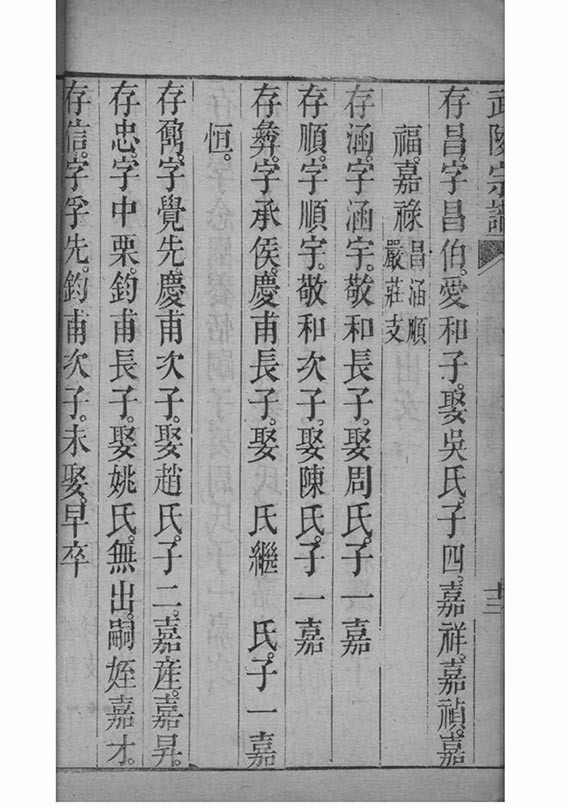 武陵宗譜
存昌。字昌伯。愛和子。娶吳氏。子四。嘉祥。嘉禎。嘉
福。嘉祿
昌涵順
嚴莊支
存涵。字涵宇。敬和長子。娶周氏。子一嘉
存順。字順宇。敬和次子。娶陳氏。子一嘉
存彝。字承侯。慶甫長子。娶　氏繼　氏。子一嘉
恒。
存。字覺先。慶甫次子。娶趙氏。子二。嘉產。嘉昇。
存忠。字中栗。鈞甫長子。娶姚氏。無出。嗣姪嘉才。
存信。字孚先。鈞甫次子。未娶。早卒